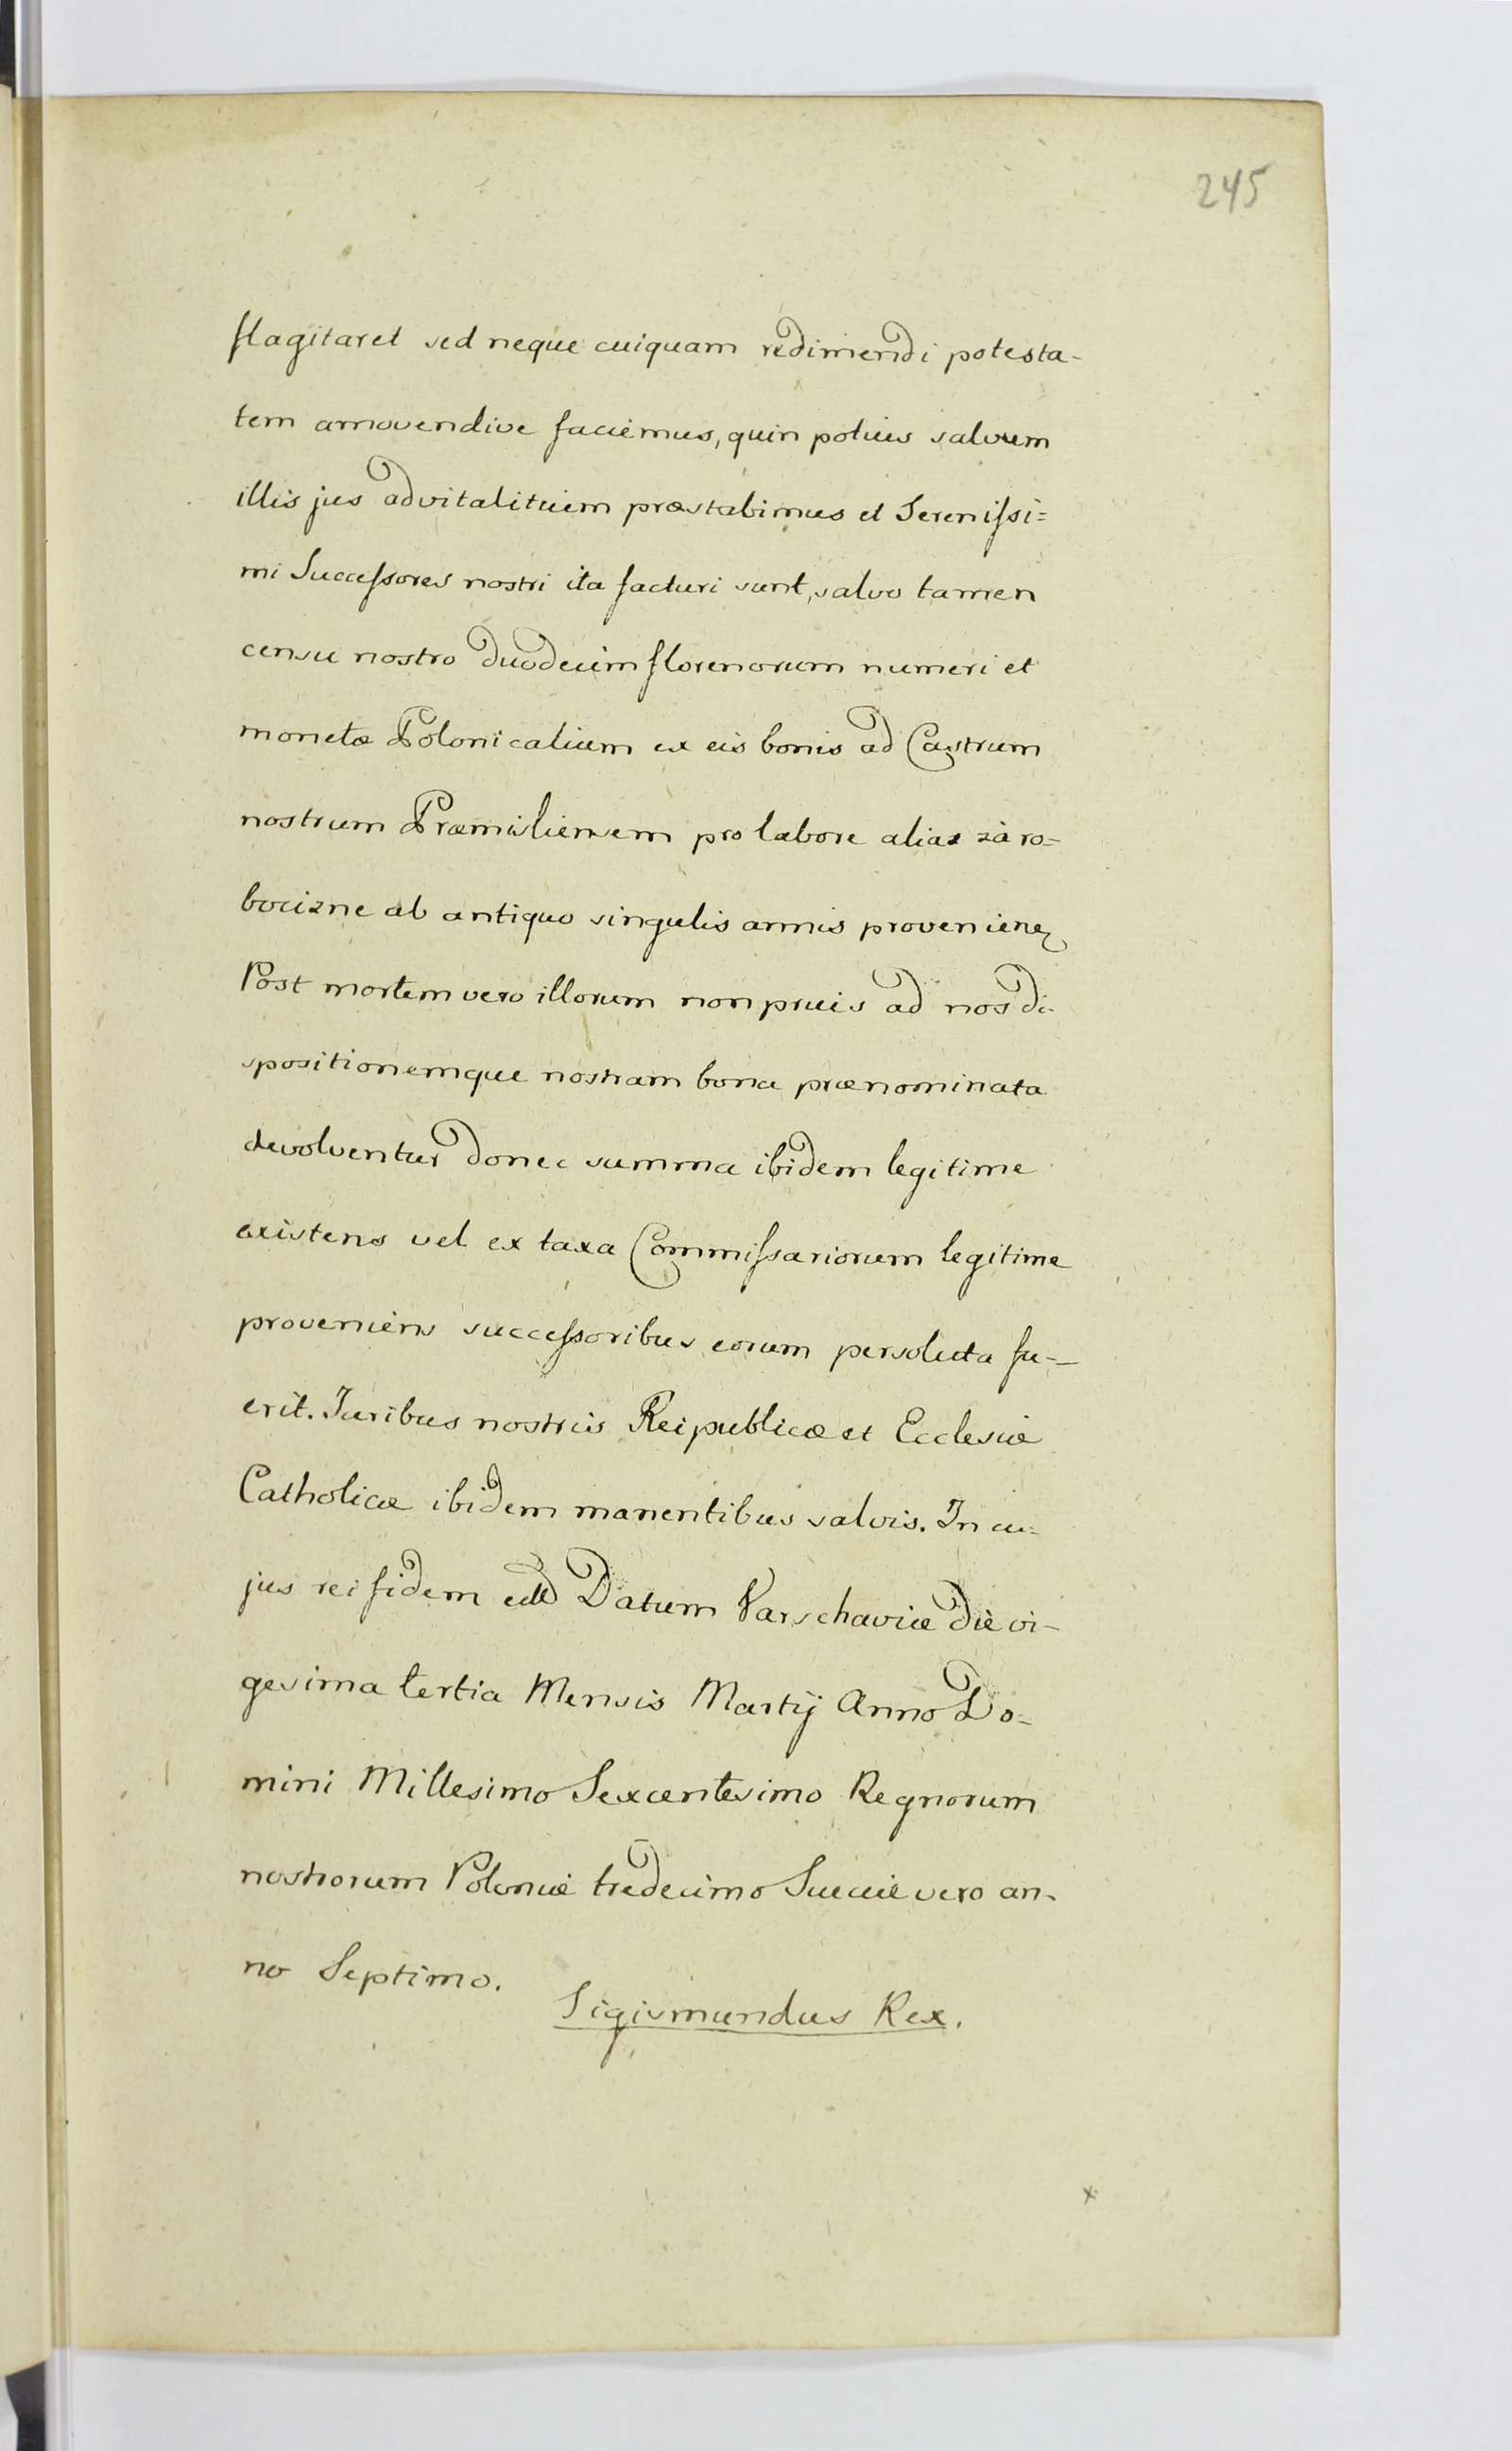 245
flagitaret sed neque cuiquam redimendi potesta-
tem amovendive faciemus, quin potius salvum
illis jus advitalituem præstabimus et Serenissi=
mi Successores nostri ita facturi sunt, salvo tamen
censu nostro duodecim florenorum numeri et
monetæ Polonicalium ex eis bonis ad Castrum
nostrum Præmisliensem pro labore alias zà ro=
bocizne ab antiquo singulis annis provenien
Post mortem vero illorum non prius ad nos di-
spositionemque nostram bona prænominata
devolventur donec summa ibidem legitime
existens vel ex taxa Commissariorum legitime
proveniens successoribus eorum persoluta fu-
erit. Juribus nostris Reipublicæ et Ecclesiæ
Catholicæ ibidem manentibus salvis. In cu=
jus rei fidem Datum Varschaviæ die vi-
gesima tertia Mensis Martij Anno Do=
mini Millesimo Sexcentesimo Regnorum
nostrorum Poloniæ tredecimo Sueciæ vero an-
no Septimo.
Sigismundus Rex.
x